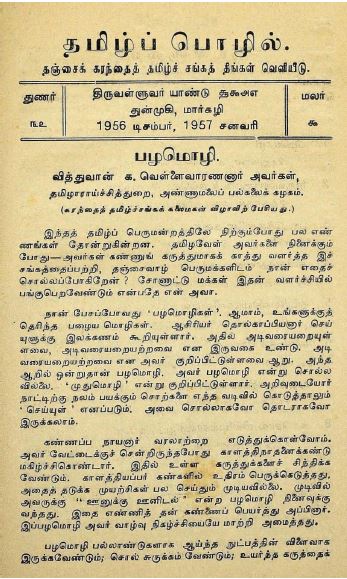 தமிழ்ப் பொழில்.
தஞ்சைக் கரந்தைத் தமிழ்ச் சங்கத் திங்கள் வெளியீடு.
துணர்
௩௨
திருவள்ளுவர் யாண்டு ௧௯௮௭
துன்முகி, மார்கழி
1956 டிசம்பர், 1957 சனவரி
மலர்
௯
பழமொழி.
வித்துவான் க. வெள்ளைவாரணனார் அவர்கள்,
தமிழாராய்ச்சித்துறை, அண்ணாமலைப் பல்கலைக் கழகம்.
(கரந்தைத் தமிழ்ச்சங்கக் கலைமகள் விழாவிற் பேசியது.)
இந்தத் தமிழ்ப் பெருமன்றத்திலே நிற்கும்போது பல எண்
ணங்கள் தோன்றுகின்றன. தமிழவேள் அவர்களை நினைக்கும்
போது—அவர்கள் கண்ணுங் கருத்துமாகக் காத்து வளர்த்த இச்
சங்கத்தைப்பற்றி, தஞ்சைவாழ் பெருமக்களிடம் நான் எதைச்
சொல்லப்போகிறேன்? சோணாட்டு மக்கள் இதன் வளர்ச்சியில்
பங்குபெறவேண்டும் என்பதே என் அவா.
நான் பேசப்போவது 'பழமொழிகள்'. ஆமாம், உங்களுக்குத்
தெரிந்த பழைய மொழிகள். ஆசிரியர் தொல்காப்பியனார் செய்
யுளுக்கு இலக்கணம் கூறியுள்ளார். அதில் அடிவரையறையுள்
ளவை, அடிவரையறையற்றவை என இருவகை உண்டு. அடி
வரையறையற்றவை என அவர் குறிப்பிட்டுள்ளவை ஆறு. அந்த
ஆறில் ஒன்றுதான் பழமொழி, அவர் பழமொழி என்று சொல்ல
வில்லை. 'முதுமொழி' என்று குறிப்பிட்டுள்ளார். அறிவுடையோர்
நாட்டிற்கு நலம் பயக்கும் சொற்களை எந்த வடிவில் கொடுத்தாலும்
'செய்யுள்' எனப்படும். அவை சொல்லாகவோ தொடராகவோ
இருக்கலாம்.
கண்ணப்ப நாயனார் வரலாற்றை எடுத்துக்கொள்வோம்.
அவர் வேட்டைக்குச் சென்றிருந்தபோது காளத்திநாதனைக்கண்டு
மகிழ்ச்சிகொண்டார். இதில் உள்ள கருத்துக்களைச் சிந்திக்க
வேண்டும். காளத்தியப்பர் கண்களில் உதிரம் பெருக்கெடுத்தது,
அதைத் தடுக்க முயற்சிகள் பல செய்தும் முடியவில்லை. முடிவில்
அவருக்கு "ஊனுக்கு ஊனிடல்" என்ற பழமொழி நினைவுக்கு
வந்தது. இதை எண்ணித் தன் கண்ணைப் பெயர்த்து அப்பினார்.
இப்பழமொழி அவர் வாழ்வு நிகழ்ச்சியையே மாற்றி அமைத்தது.
பழமொழி பல்லாண்டுகளாக ஆய்ந்த நுட்பத்தின் விளைவாக
இருக்கவேண்டும்; சொல் சுருக்கம் வேண்டும்; உயர்ந்த கருத்தைக்